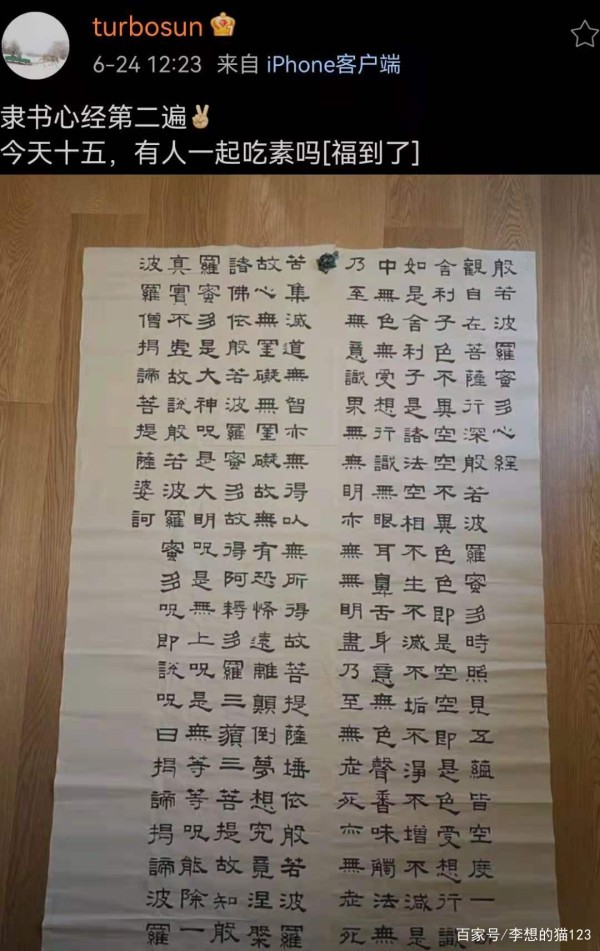 turbosun
6-24 12:23 来自 iPhone客户端
隶书心经第二遍✌🏼
今天十五，有人一起吃素吗[福到了]
般若波羅蜜多心經
觀自在菩薩行深般若波羅蜜多時照見五蘊皆空度一
舍利子色不異空空不異色色即是空空即是色受想行識
如是舍利子是諸法空相不生不滅不垢不淨不增不減是
中無色無受想行識無眼耳鼻舌身意無色聲香味觸法無
乃至無意識界無無明亦無無明盡乃至無老死亦無老死
苦集滅道無智亦無得以無所得故菩提薩埵依般若波羅
故心無罣礙無罣礙故無有恐怖遠離顛倒夢想究竟涅槃
諸佛依般若波羅蜜多故得阿耨多羅三藐三菩提故知般
羅蜜多是大神呪是大明呪是無上呪是無等等呪能除一
真實不虛故說般若波羅蜜多呪即說呪曰揭諦揭諦波羅
波羅僧揭諦菩提薩婆訶
百家号/李想的猫123